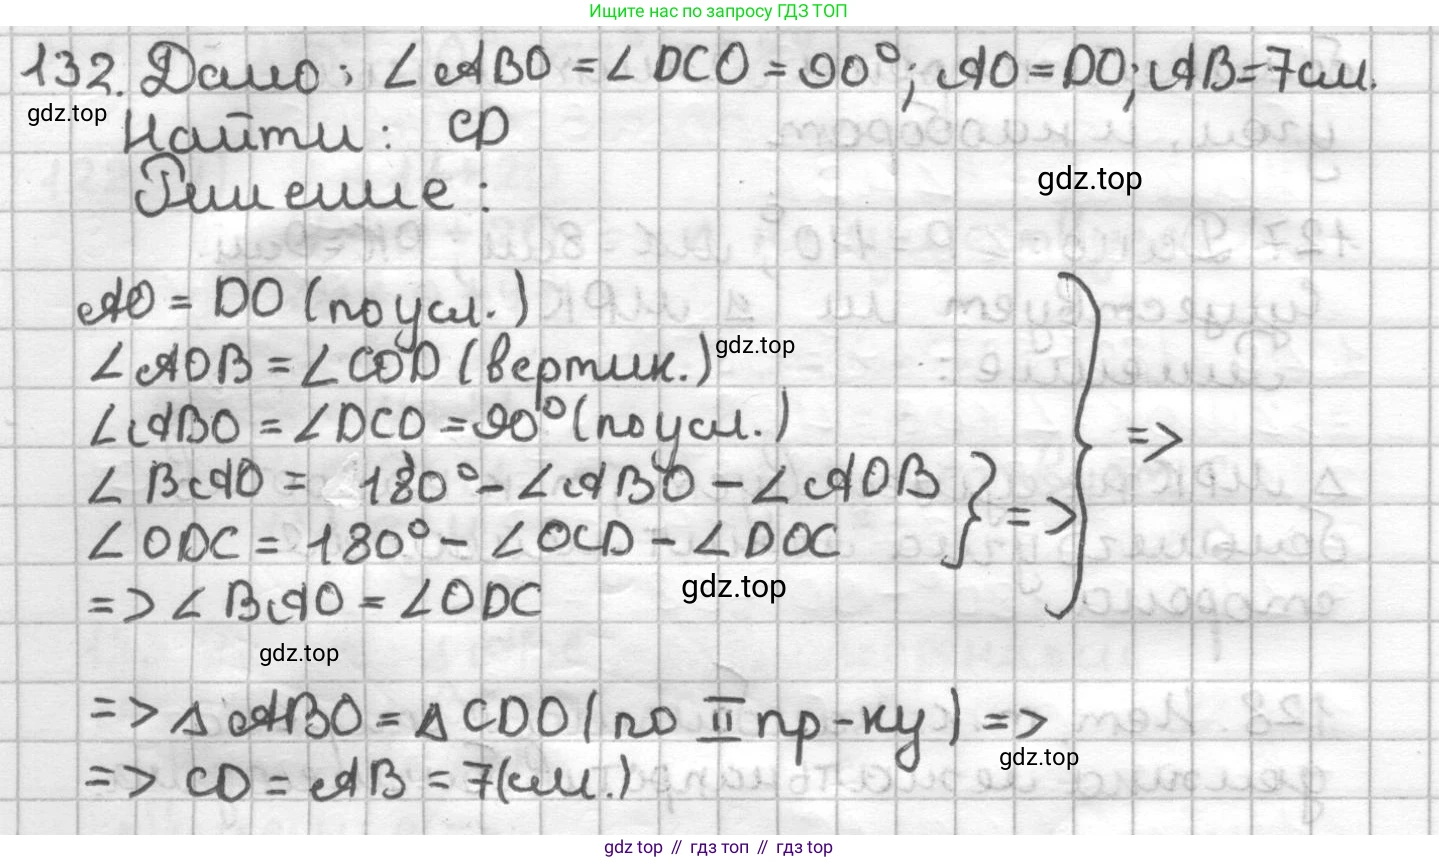 Ищите нас по запросу ГДЗ ТОП
132. Дано: ∠ABO = ∠DCO = 90°; AO = DO; AB = 7см.
gdz.top
Найти: CD
gdz.top
Решение:
AO = DO (по усл.)
∠AOB = ∠COD (вертик.)
gdz.top
∠ABO = ∠DCO = 90° (по усл.)
=>
∠BAO = 180° - ∠ABO - ∠AOB
∠ODC = 180° - ∠OCD - ∠DOC
=>
=> ∠BAO = ∠ODC
gdz.top
gdz.top
=> △ABO = △CDO (по II пр-ку) =>
gdz.top
=> CD = AB = 7(см.)
gdz top // гдз топ // гдз top